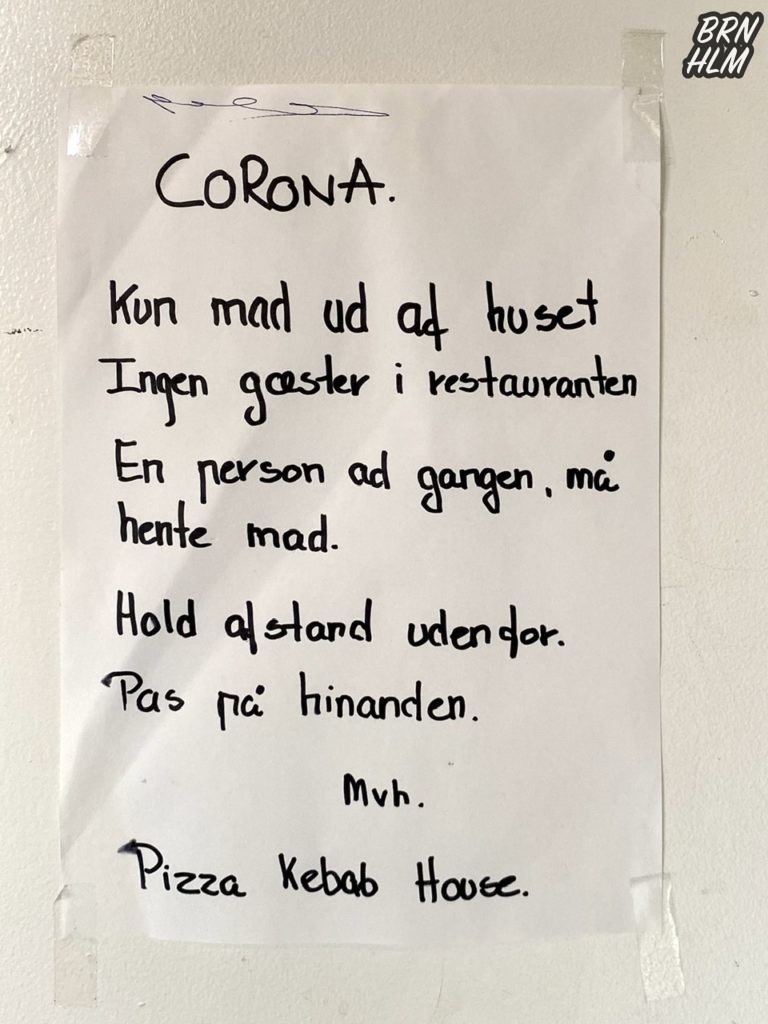 BRN
HLM
CORONA.
Kun mad ud af huset
Ingen gæster i restauranten
En person ad gangen, må
hente mad.
Hold afstand udenfor.
Pas på hinanden.
Mvh.
Pizza Kebab House.